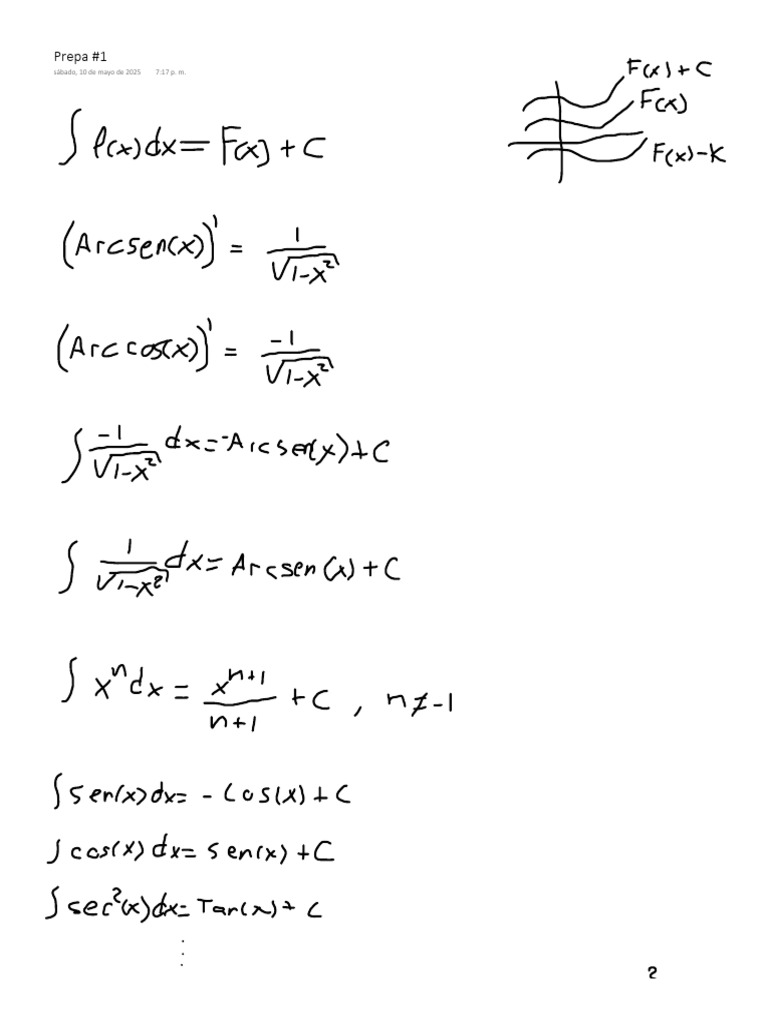 Prepa #1
sábado, 10 de mayo de 2025 7:17 p. m.
F(x) + C
F(x)
F(x) - K
∫ f(x) dx = F(x) + C
(Arcsen(x))' = 1/√(1-x²)
(Arc cos(x))' = -1/√(1-x²)
∫ -1/√(1-x²) dx = -Arcsen(x) + C
∫ 1/√(1-x²) dx = Arcsen(x) + C
∫ xⁿ dx = xⁿ⁺¹/(n+1) + C , n ≠ -1
∫ sen(x) dx = - Cos(x) + C
∫ cos(x) dx = sen(x) + C
∫ sec²(x) dx = Tan(x) + C
⋮
2